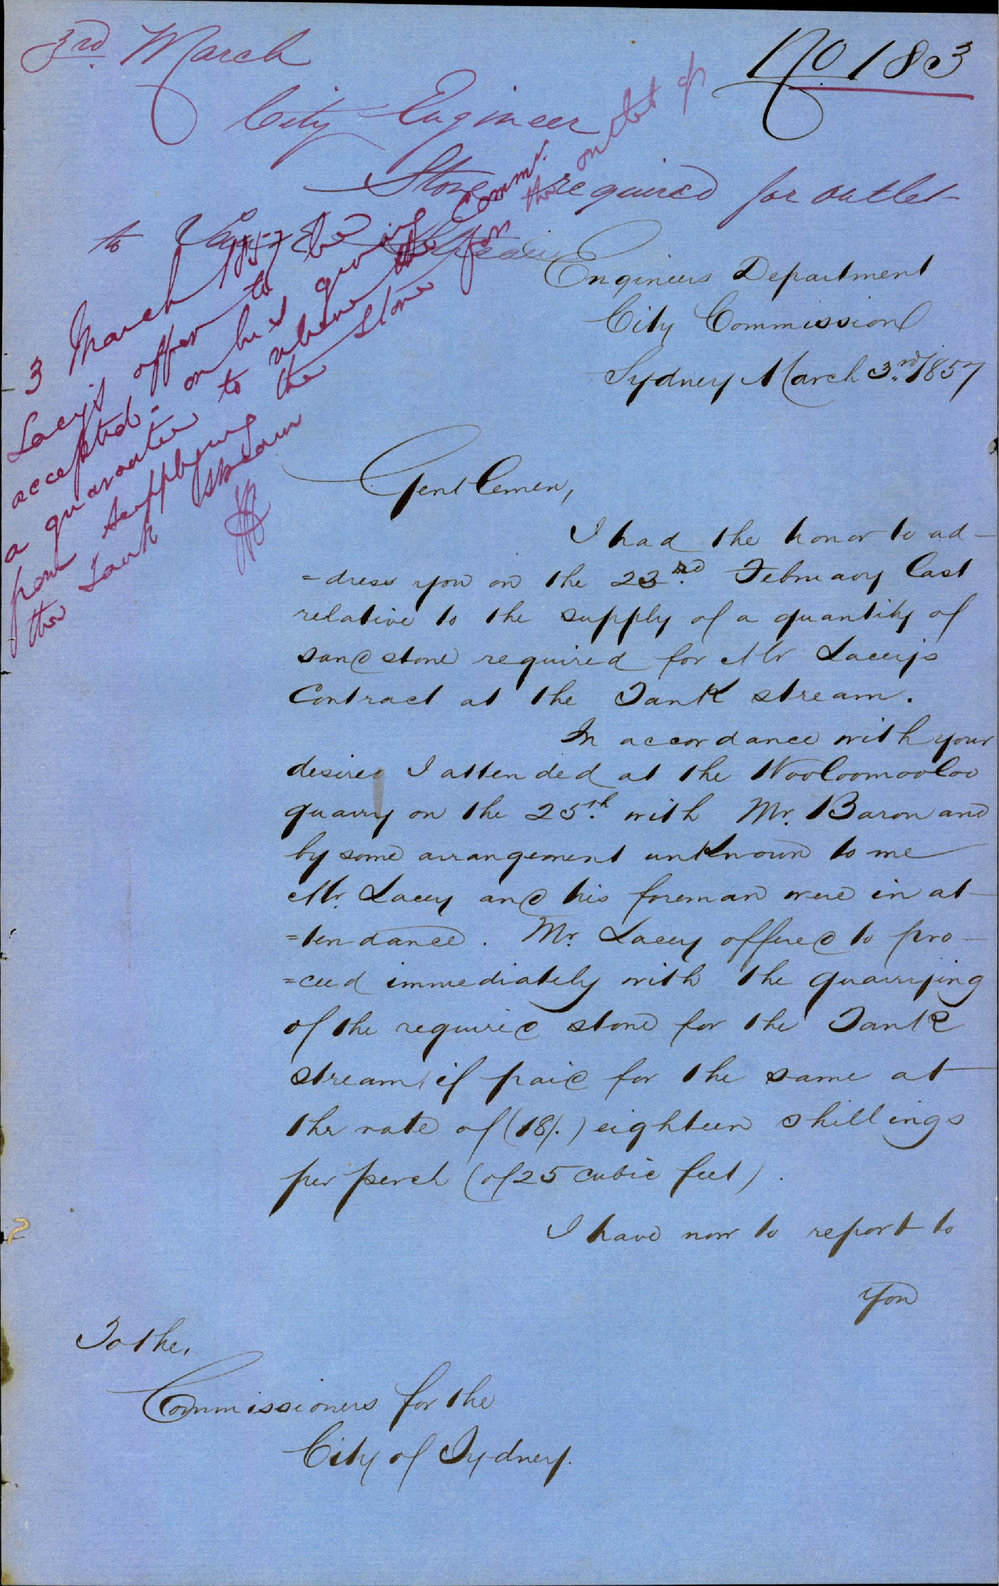 No 183
3rd March
City Engineer
Stone required for outlet
to
Engineers Department
City Commission
Sydney March 3rd. 1857
3 March 1857
Lacey's offer to be
accepted - on his giving
a guarantee to relieve the Comms.
from supplying the stone for the outlet of
the Tank Stream
Gentlemen,
I had the honor to ad-
=dress you on the 23rd. February last
relative to the supply of a quantity of
sandstone required for Mr Lacey's
Contract at the Tank stream.
In accordance with your
desires I attended at the Wooloomooloo
quarry on the 25th. with Mr. Baron and
by some arrangement unknown to me
Mr. Lacey and his foreman were in at-
=tendance. Mr. Lacey offered to pro-
=ceed immediately with the quarrying
of the required stone for the Tank
stream, if paid for the same at
the rate of (18/.) eighteen shillings
per perch (of 25 cubic feet).
I have now to report to
you
To the,
Commissioners for the
City of Sydney.